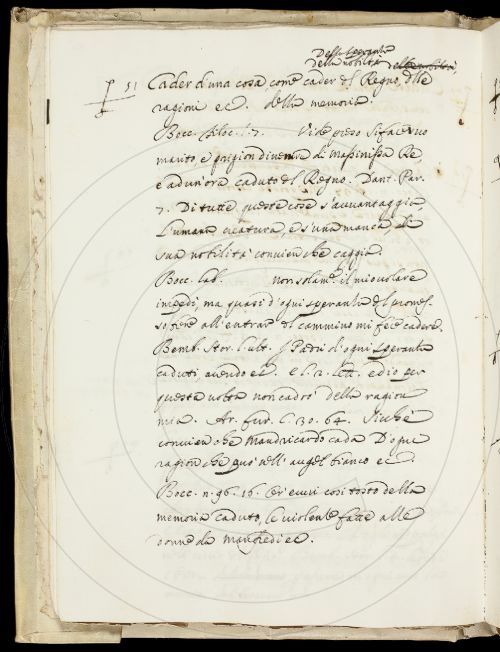 Della speranza
della nobiltà
51 Cader d'una cosa come cader del Regno, delle
ragioni ec. della memoria.
Bocc. filoc. l. 7. Vide preso Siface suo
marito e prigion divenire di Massinissa Re,
e ad un'ora caduto del Regno. Dant. Par.
7. Di tutte queste cose s'avvantaggia
L'umana creatura, e s'una manca, Di
sua nobilità convien che caggia.
Bocc. lab. non solam.e il mio volare
impedì, ma quasi d'ogni speranza del promes-
so bene all'entrar del cammino mi fece cadere.
Bemb. Stor. l. ult. I Padri d'ogni speranza
caduti, avendo ec. e l. 2. Lett. ed io per
questa volta non cadrò della ragion
mia. Ar. fur. C. 30. 64. Sicchè
convien che Mandricardo cada D'ogni
ragion che può nell'augel bianco ec.
Bocc. n. 96. 16. Ov'evvi così tosto della
memoria caduto, le violenze fatte alle
donne da Manfredi ec.